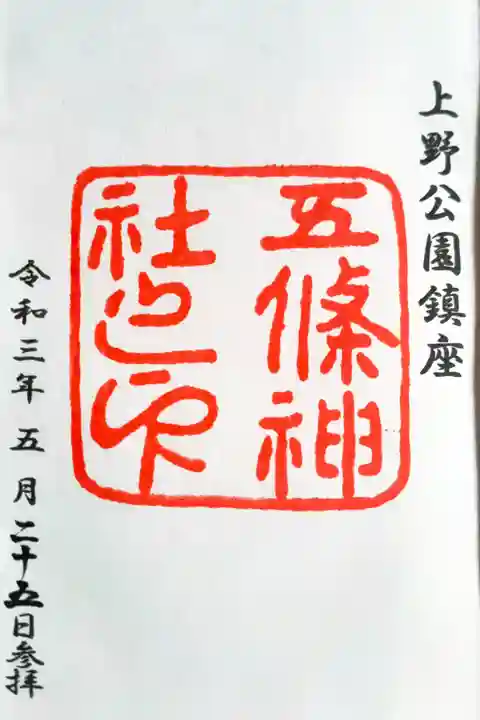 上野公園鎮座
五條神
社之印
令和三年五月二十五日参拝